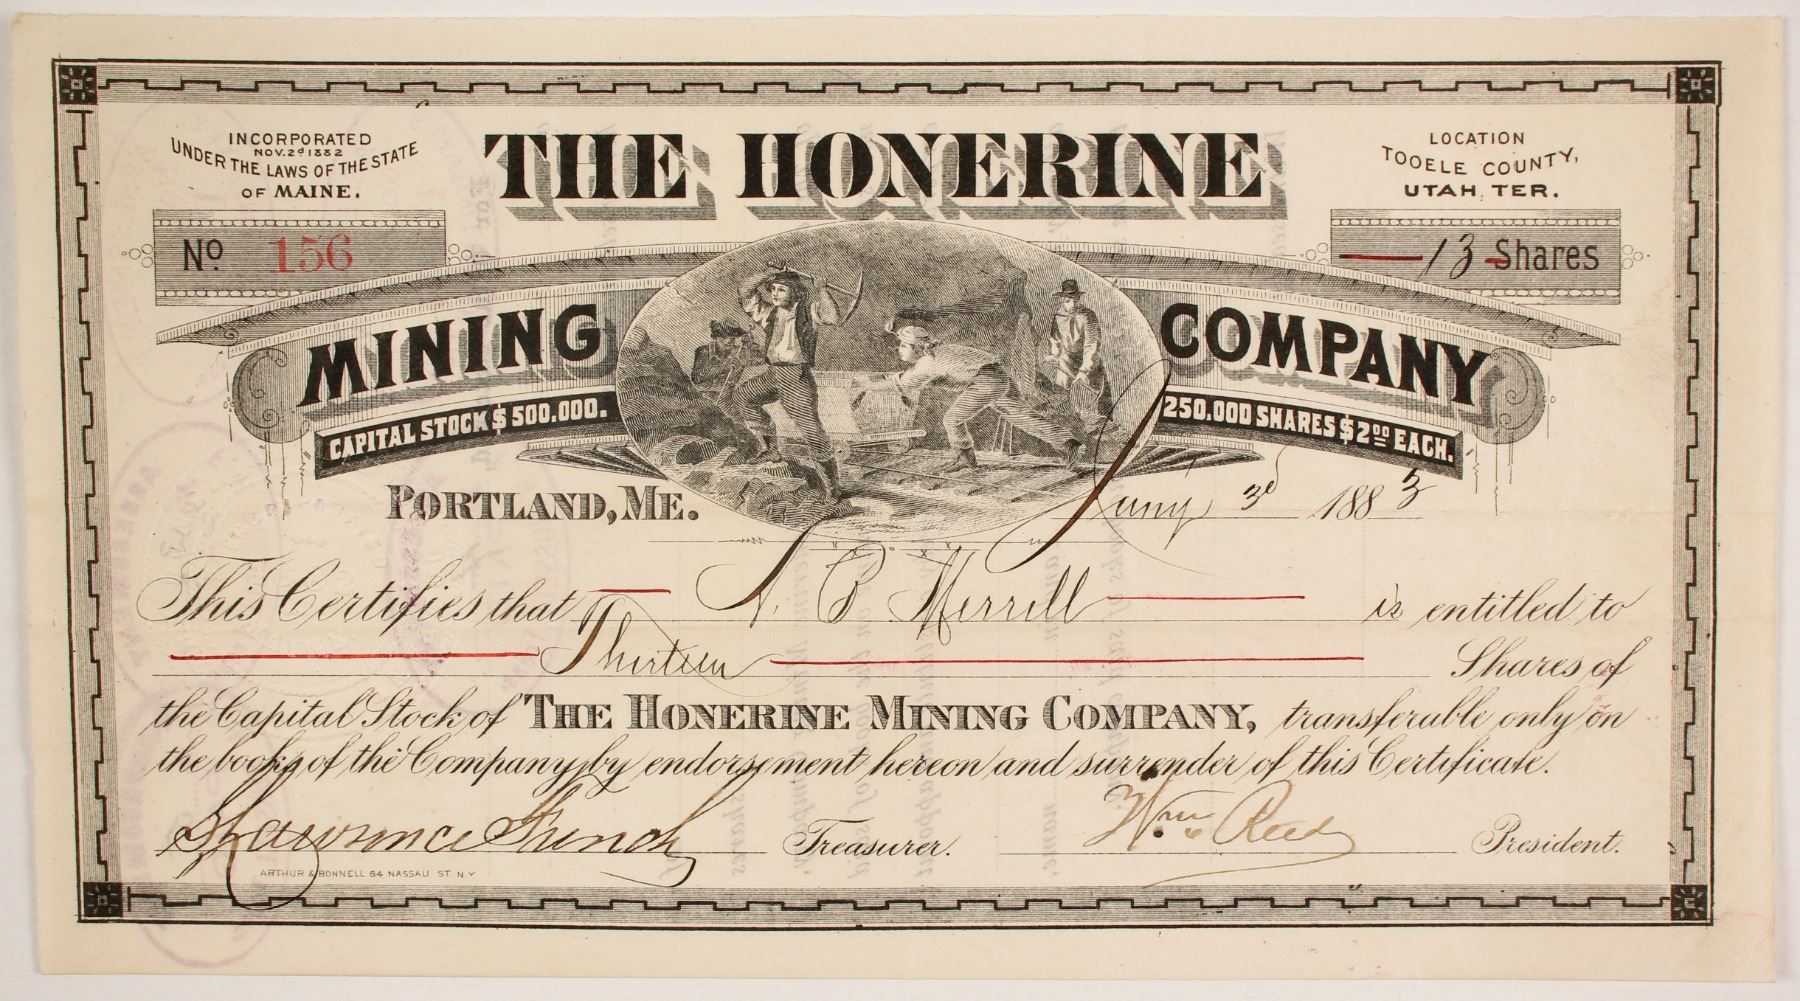 INCORPORATED
NOV. 2d 1882
UNDER THE LAWS OF THE STATE
OF MAINE.
THE HONERINE
LOCATION
TOOELE COUNTY,
UTAH, TER.
No. 156
13 Shares
MINING COMPANY
CAPITAL STOCK $500.000.
250.000 SHARES $2 00 EACH.
PORTLAND, ME. 3d 1883
This Certifies that B Merrill is entitled to
Thirteen Shares of
the Capital Stock of THE HONERINE MINING COMPANY, transferable only on
the books of the Company by endorsement hereon and surrender of this Certificate.
Lawrence French Treasurer. Wm Reed President.
ARTHUR & BONNELL 64 NASSAU ST N Y